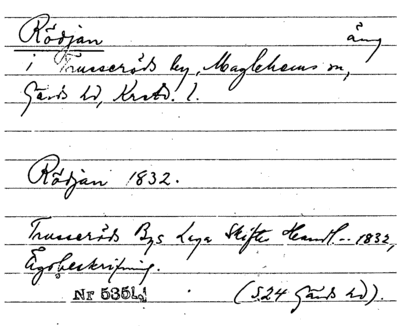 Rödjan äng
i Trusseröds by, Maglehems sn,
Gärds hd, Krstd. l.
Rödjan 1832.
Trusseröds Bys Laga Skiftes Handl.. 1832,
Ägobeskrifning.
Nr 5351 (S.24 Gärds hd).